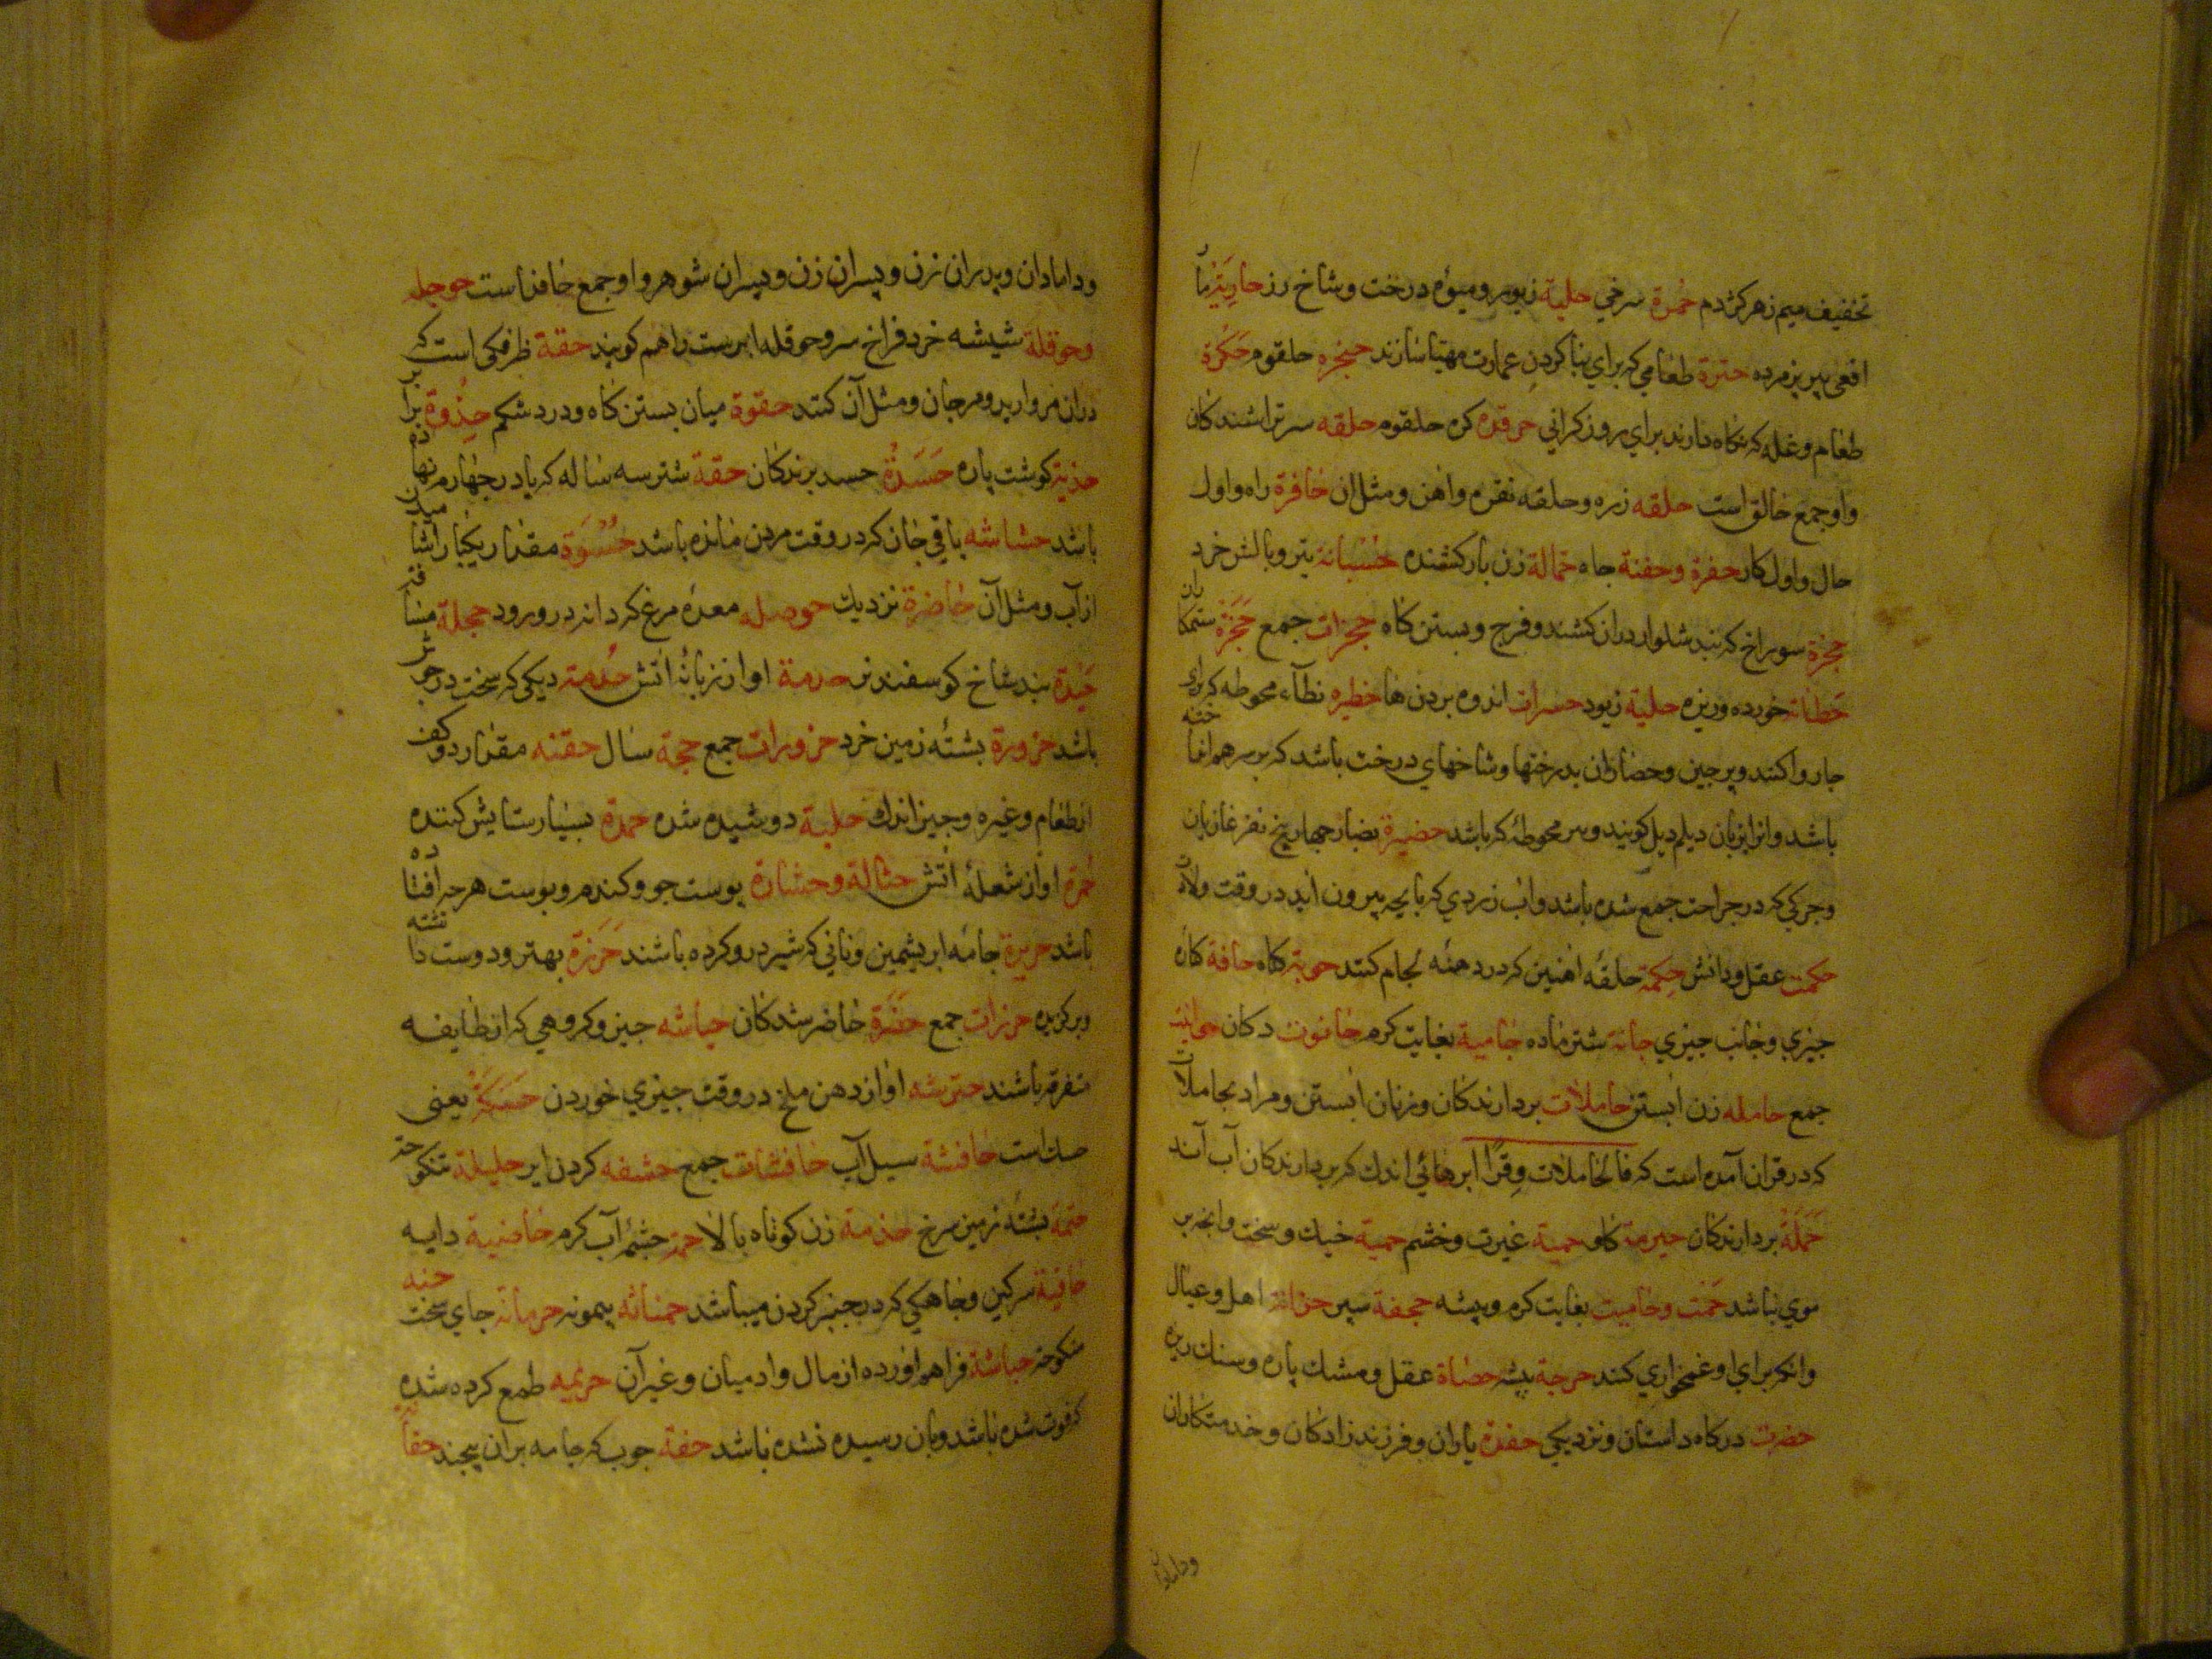 تخفیف میم زهر کژدم حُمرة سرخی حلیة زیور و میوه درخت و شاخ رز حاریَة مار
افعی پیر پژمرده حترة طعامی که برای بنا کردن عمارت مهیا سازند حنجره حلقوم حَکرة
طعام و غله که نکاه دارند برای روز کرانی حرقده کره حلقوم حلقه سرتراشندکان
و او جمع حالق است حلقه زره و حلقه نقره و اهن و مثل ان حافرة راه و اول
حال و اول کار حفرة و حفنة جاه حمالة زن بارکشنده حُسْبانة تیر و بالش خرد
حجزة سوراخ که بند شلوار دران کشند و فرج و بستن کاه حجزات جمع حَجَزَة ستمکاران
حطات خورده و ریزه حلیة زیور حسرات اندوه بردن ها حظیره محوطه که برای
جاروا کنند و پرجین و حصاران بدرختها و شاخهای درخت باشد که بر سر هم
باشد و انرا بزبان دیلم کویند و هر محوطه که باشد حضیرة جهار پنج نفر غازیان
و جرکی که در جراحت جمع شده باشد و اب زردی که با بجه بیرون اید در وقت ولادت
حکمت عقل و دانش حکمة حلقه اهنین که در دهنه لجام کنند حافة کناره
جیزی و جانب جیزی حانة شتر ماده حامیة بغایت کرم حانوت دکان حوانیت
جمع حامله زن ابستن حاملات بردارندکان و زنان ابستن و مراد بحاملات
که در قران آمده است که فالحاملات وِقرًا ابرهائی اندک که بردارندکان آب آند
حَمَلَة بردارندکان حیرمة کاو حمیة غیرت و خشم حمیة خیک و سخت و انجه بر
موی نباشد حَمَت و حامیت بغایت کرم و پیشه حجفة سپر حزانة اهل و عیال
و انکه برای او غمخواری کنند حرجة بیشه حصاة عقل و مشک پاره و سنک ریزه
حضرت درکاه و نزدیکی حفدة یاران و فرزندزادکان و خدمتکاران
و دامادان
و دامادان و پدران زن و پسران زن و پسران شوهر و او جمع حافد است حوجله
و حوقلة شیشه خرد فراخ سر و حوقله را هم کویند حقة ظرفکی است که
دران مروارید و مرجان و مثل آن کنند حقوة میان بستن کاه و درد شکم حِذْوَة برابر
حذیة کوشت پاره حَسَدَة حسد برندکان حقة شتر سه ساله که پا در جهارم نهاده
باشد حشاشه باقی جان که در وقت مردن مانده باشد حُسْوَة مقدار یکبار اشامیدن
از آب و مثل آن حاضرة نزدیک حوصله معده مرغ که دانه درو رود حجلة مسافت
حَیْدَة بند شاخ کوسفند نر حدمة اواز زبانه اتش حُدَمة دیکی که سخت در جوش
باشد حزورة بشته زمین خرد حزورات جمع حجة سال حفنه مقدار دو کف
از طعام و غیره و جیز اندک حلبة دوشیده شده حمدة بسیار ستایش کننده
اواز شعله اتش حثالة و حشارة پوست جو و کندم و پوست هر جه افتاده
باشد حریرة جامه ابریشمین و نانی که شیر درو کرده باشند حَرَزة بهتر و دوست داشته
و برکزیده حرزات جمع حَضَرَة حاضر شدکان حباشه جیز و کروهی که از طایفه
متفرقه باشند حترشه اواز دهن ملخ در وقت جیزی خوردن حَسَکَة یعنی
است حافشة سیل آب حافشات جمع حشفه کردن ابر حلیلة منکوحه
حثمة بشته زمین سرخ حذمة زن کوتاه بالا حمة جشمه آب کرم حاضنة دایه
سرکین و خاهکی که در جیز کردن میباشد پیمونه حرمانة جای سخت حنه
منکوحه حباشة فراهم اورده از مال و ادمیان و غیر آن حریمه طمع کرده شده
که فوت شده باشد و بان رسیده نشده باشد حفة جوب که جامه بران پیجند